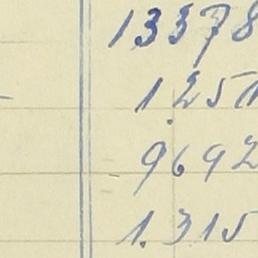 13378
1.25
9692
1.315